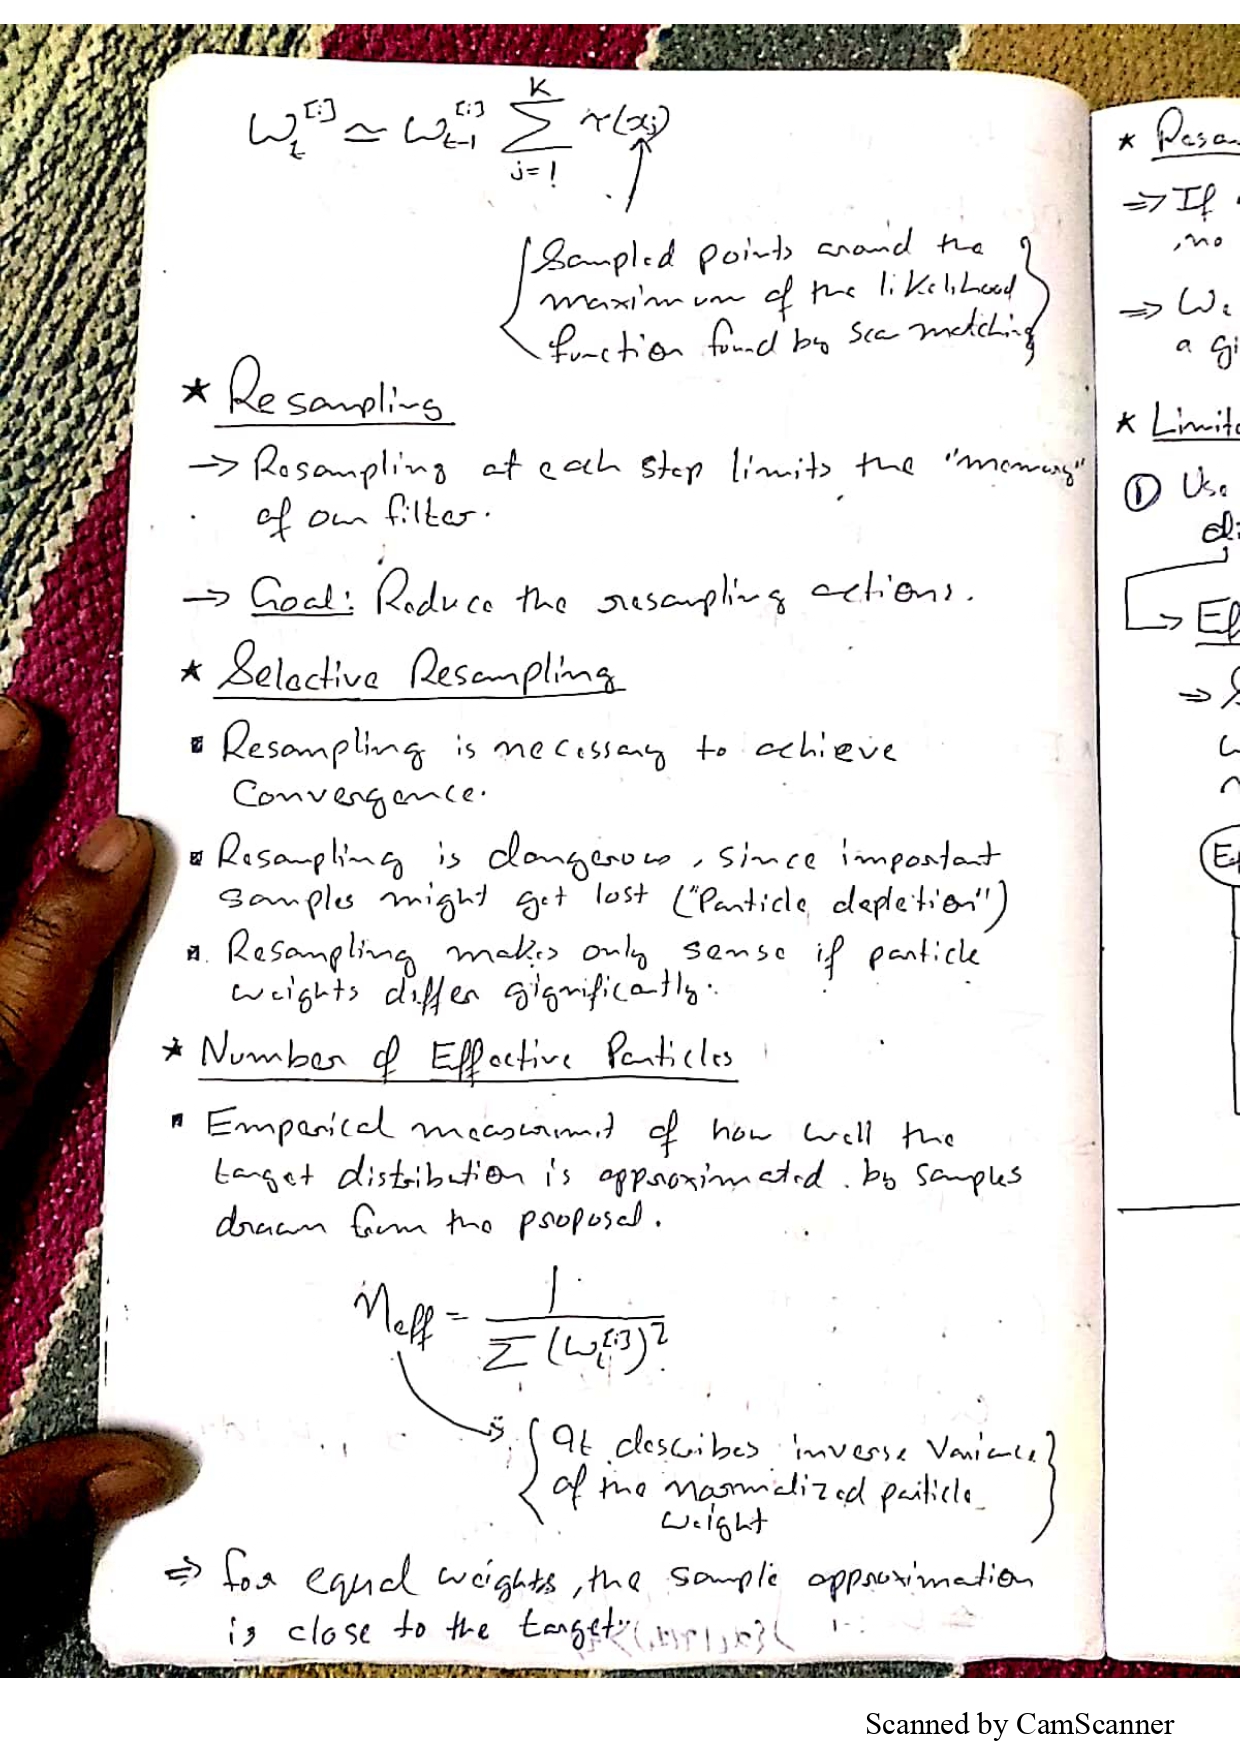 ω_t^[i] ≃ ω_{t-1}^[i] Σ_{j=1}^{K} τ(x_j)
{Sampled points around the
maximum of the likelihood
function found by scan matching}
★ Resampling
→ Resampling at each step limits the "memory"
of our filter.
→ Goal: Reduce the resampling actions.
★ Selective Resampling
▪ Resampling is necessary to achieve
Convergence.
▪ Resampling is dangerous, since important
samples might get lost ("Particle depletion")
▪ Resampling makes only sense if particle
weights differ significantly.
★ Number of Effective Particles
▪ Emperical measurment of how well the
target distribution is approximated by samples
drawn from the proposal.
n_eff = 1 / Σ (ω_t^[i])^2
{It describes inverse Variance
of the normalized particle
weight}
⇒ for equal weights, the sample approximation
is close to the target.
★
⇒ If
, no
⇒ We
a
★
① Use
⇒
Scanned by CamScanner